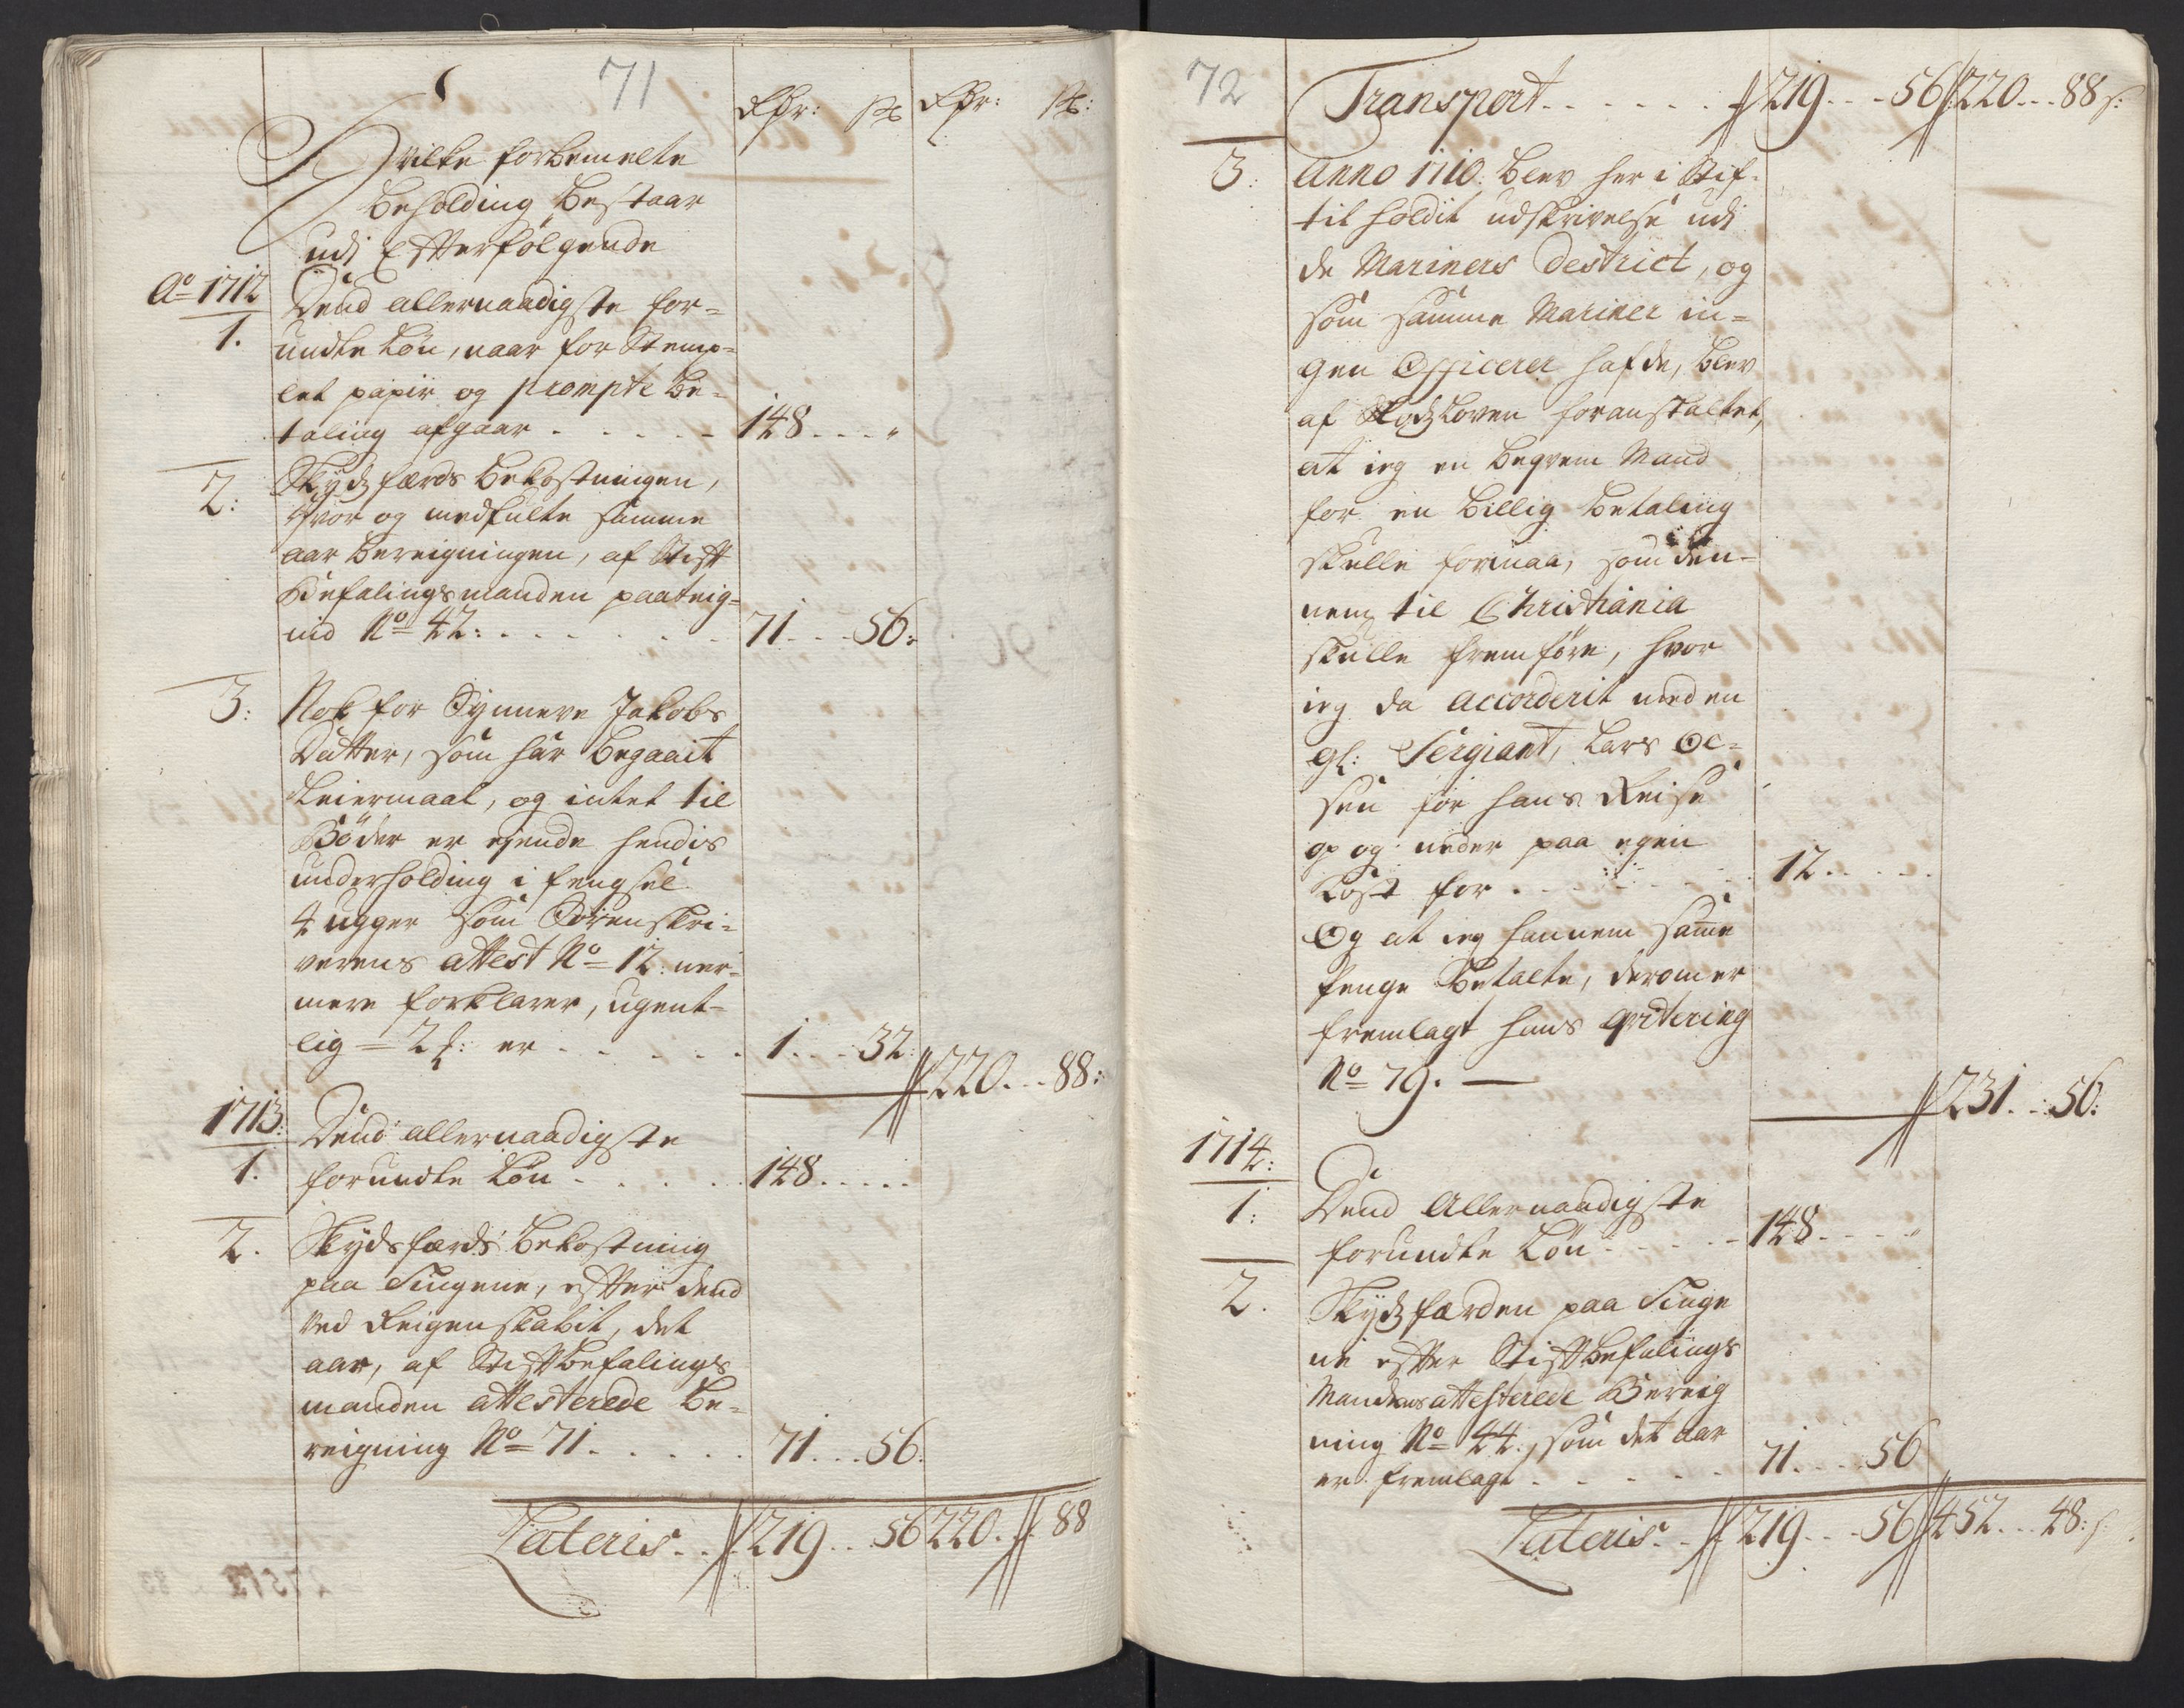 71
Rdr: ß Rdr: ß:
Hvilke forbemelte
beholding bestaar
udj Efterfölgende
Ao 1712
1. Dend allernaadigste for=
undte Lön, naar for Stemp=
let papiir og prompte be=
taling afgaar . . . . . 148 . . . "
2: Skydsfærds bekostningen,
hvor og medfulte samme
aar bereigningen, af Stift
Befalingsmanden paateig=
nid No 42: . . . . . 71 . . . 56:
3: Nok for Synneve Jakobs
Datter, som har begaait
Leiermaal, og intet til
Böder er eyende hendis
underholding i fengsel
4 ugger som Sorenskri=
verens attest No 12: ner=
mere forklarer, ugent=
lig 2 s: er . . . . . 1 . . . 32:
220 . . . 88:
1713:
1. Dend allernaadigste
forundte Lön . . . . . 148 . . . . .
2. Skydsfærds bekostning
paa Tingene, efter dend
ved Reigenskabit, det
aar, af Stiftbefalings
manden attesterede be=
reigning No 71 . . . . . 71 . . . 56:
Lateris . . 219 . . 56 220 . . 88
72
Transport . . . . . . 219 . . . 56 220 . . . 88 s:
3: Anno 1710: blev her i Stif=
tit holdit udskrivelse udj
de Mariners District, og
som samme Mariner in=
gen Officerer hafde, blev
af Slodsloven foranstaltet,
at ieg en beqvem Mand
for en billig betaling
skulle formaa, som den=
nem til Christiania
skulle fremföre, hvor
ieg da accorderit med en
gl: Sergiant, Lars Ol=
sen for hans Reise
op og neder paa egen
Kost for . . . . . 12 . . . . .
Og at ieg hannem samme
Penge betalte, derom er
fremlagt hans qvitering
No 79. —
231 . . 56:
1714:
1: Dend Allernaadigste
forundte Lön . . . . . 148 . . . . "
2. Skydsfærden paa Tinge
ne efter Stiftbefalings
Mandens attesterede Bereig
ning No 44:, som det aar
er fremlagt . . . . . 71 . . . 56
Lateris . . 219 . . . 56 452 . . . 48: s: